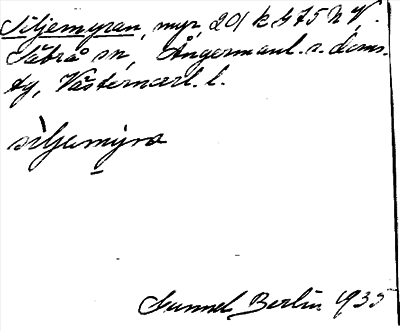 Siljemyran, myr, 201 k b 75 N V.
Säbrå sn, Ångermanl. s. doms.
tg, Västernorrl. l.
siljemýra
Gunnel Berlin 1935